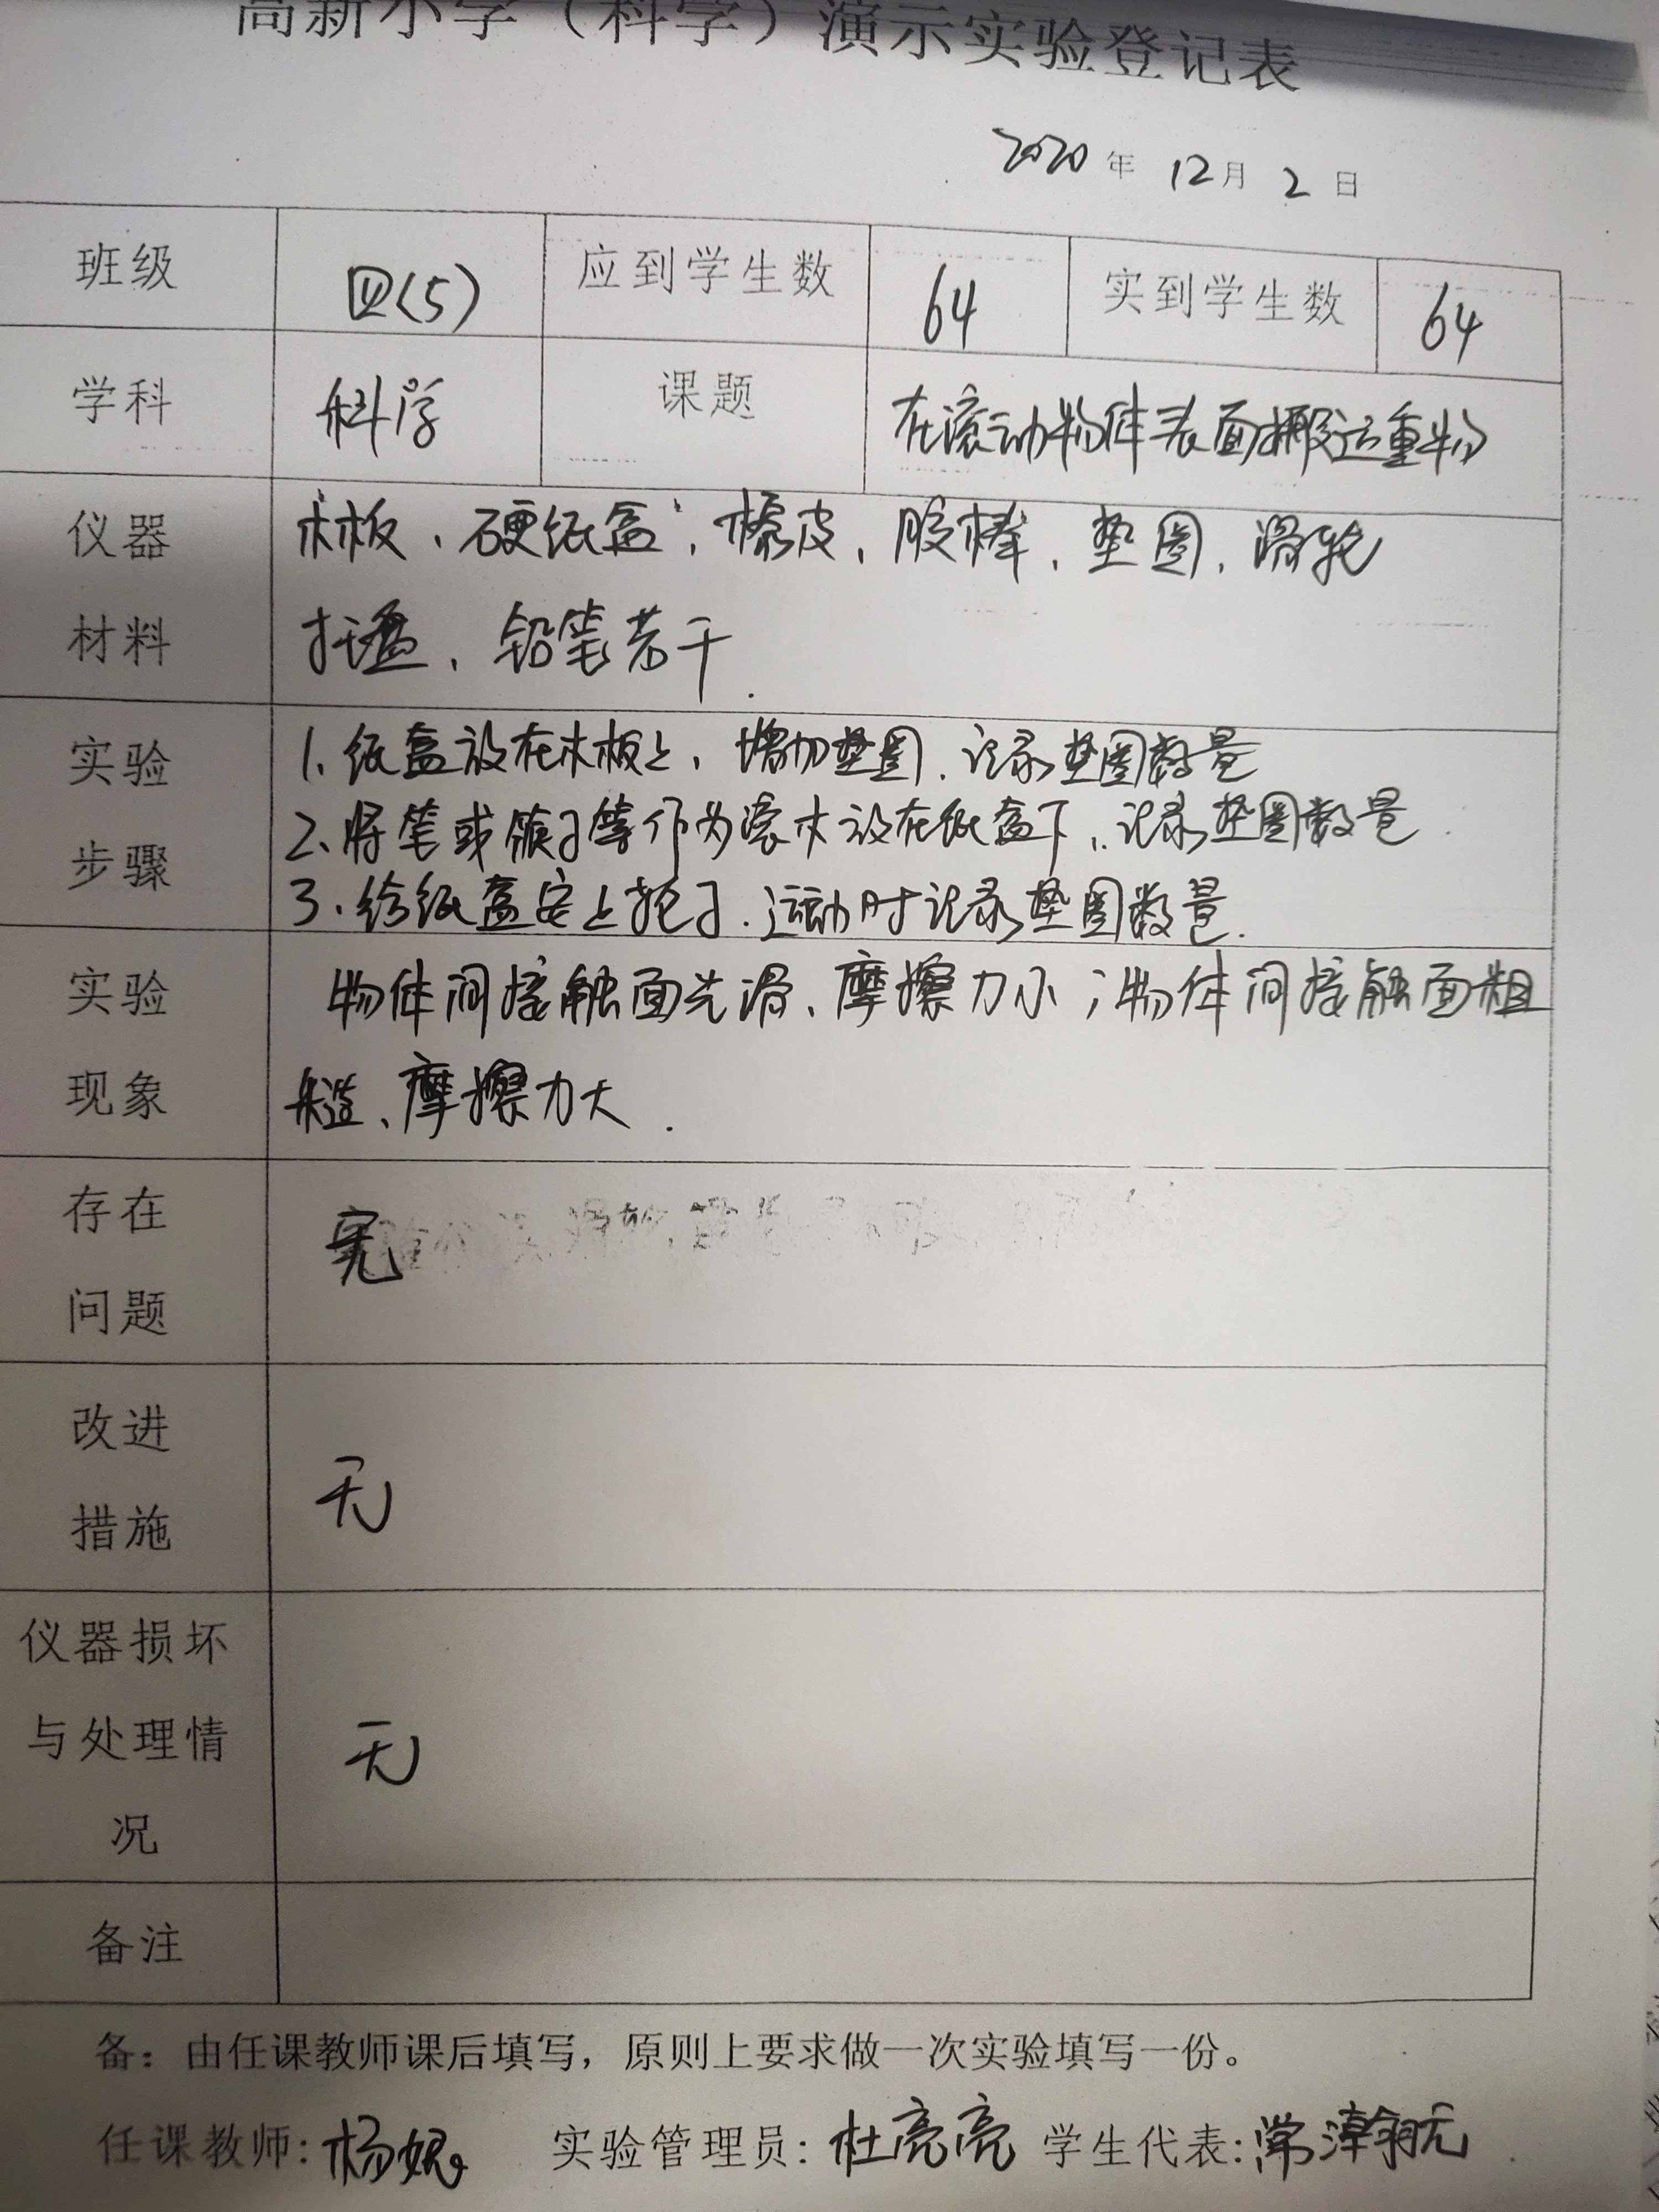 高新小学（科学）演示实验登记表
2020 年 12 月 2 日
班级 四(5) 应到学生数 64 实到学生数 64
学科 科学 课题 在滚动物体表面搬运重物
仪器 木板、硬纸盒、橡皮、胶棒、垫圈、滑轮
材料 托盘、铅笔若干.
实验 1、纸盒放在木板上，增加垫圈.记录垫圈数量
步骤 2、将笔或筷子等作为滚木放在纸盒下、记录垫圈数量.
3、给纸盒安上轮子.运动时记录垫圈数量.
实验 物体间接触面光滑、摩擦力小；物体间接触面粗
现象 糙、摩擦力大.
存在
问题 无
改进
措施 无
仪器损坏
与处理情 无
况
备注
备：由任课教师课后填写，原则上要求做一次实验填写一份。
任课教师: 杨 实验管理员: 杜亮亮 学生代表: 常